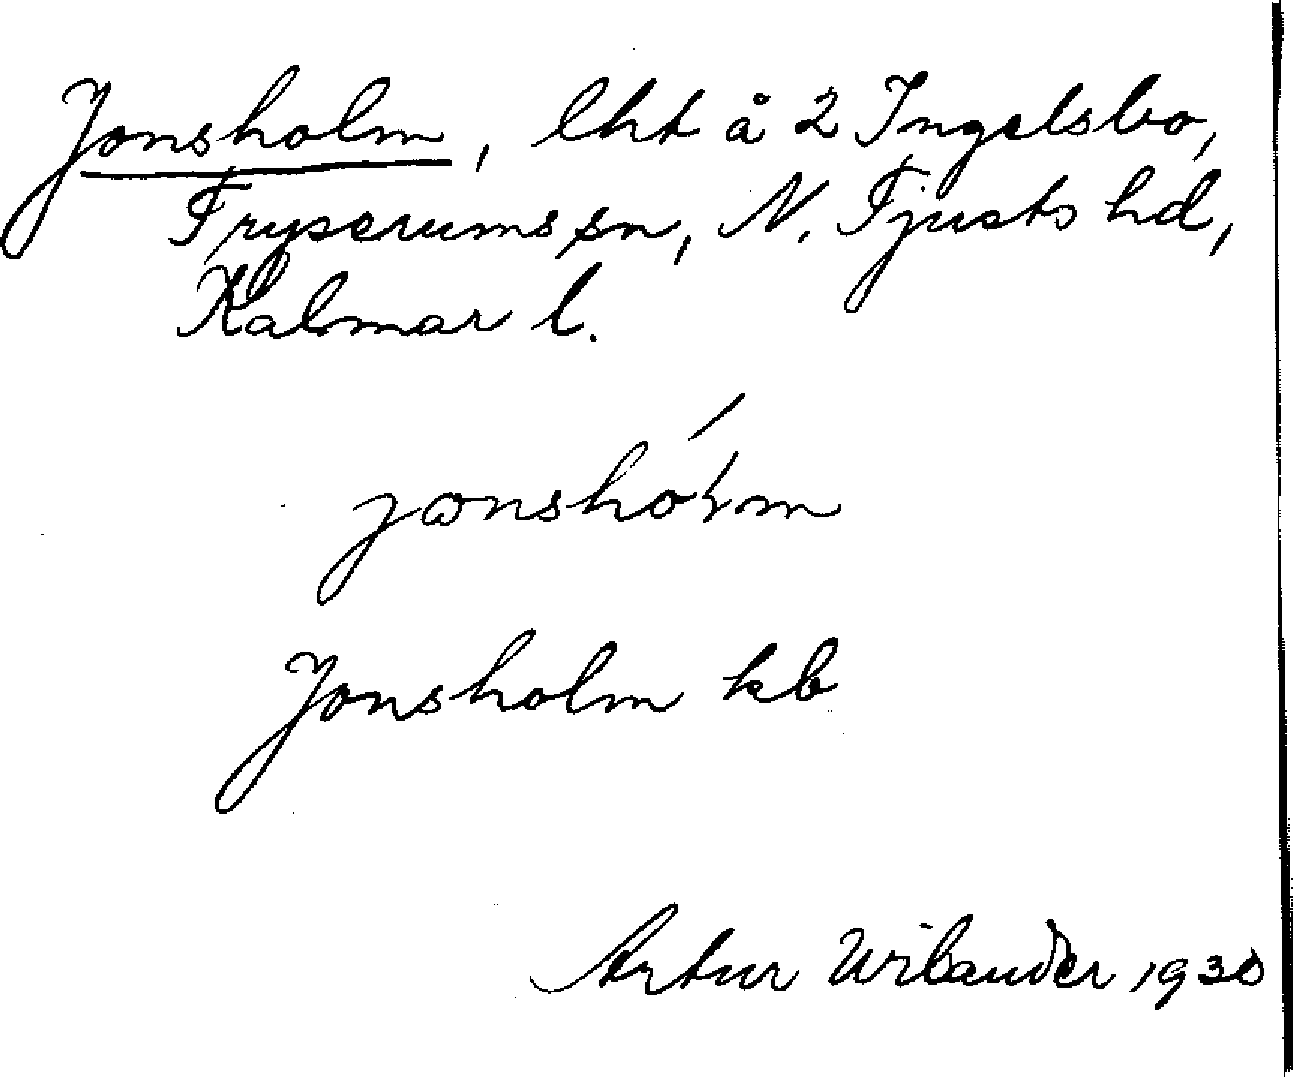 Jonsholm, lht å 2 Ingelsbo,
Fryserums sn, N. Tjusts hd,
Kalmar l.
Jonsholm kb
Artur Wilander 1930